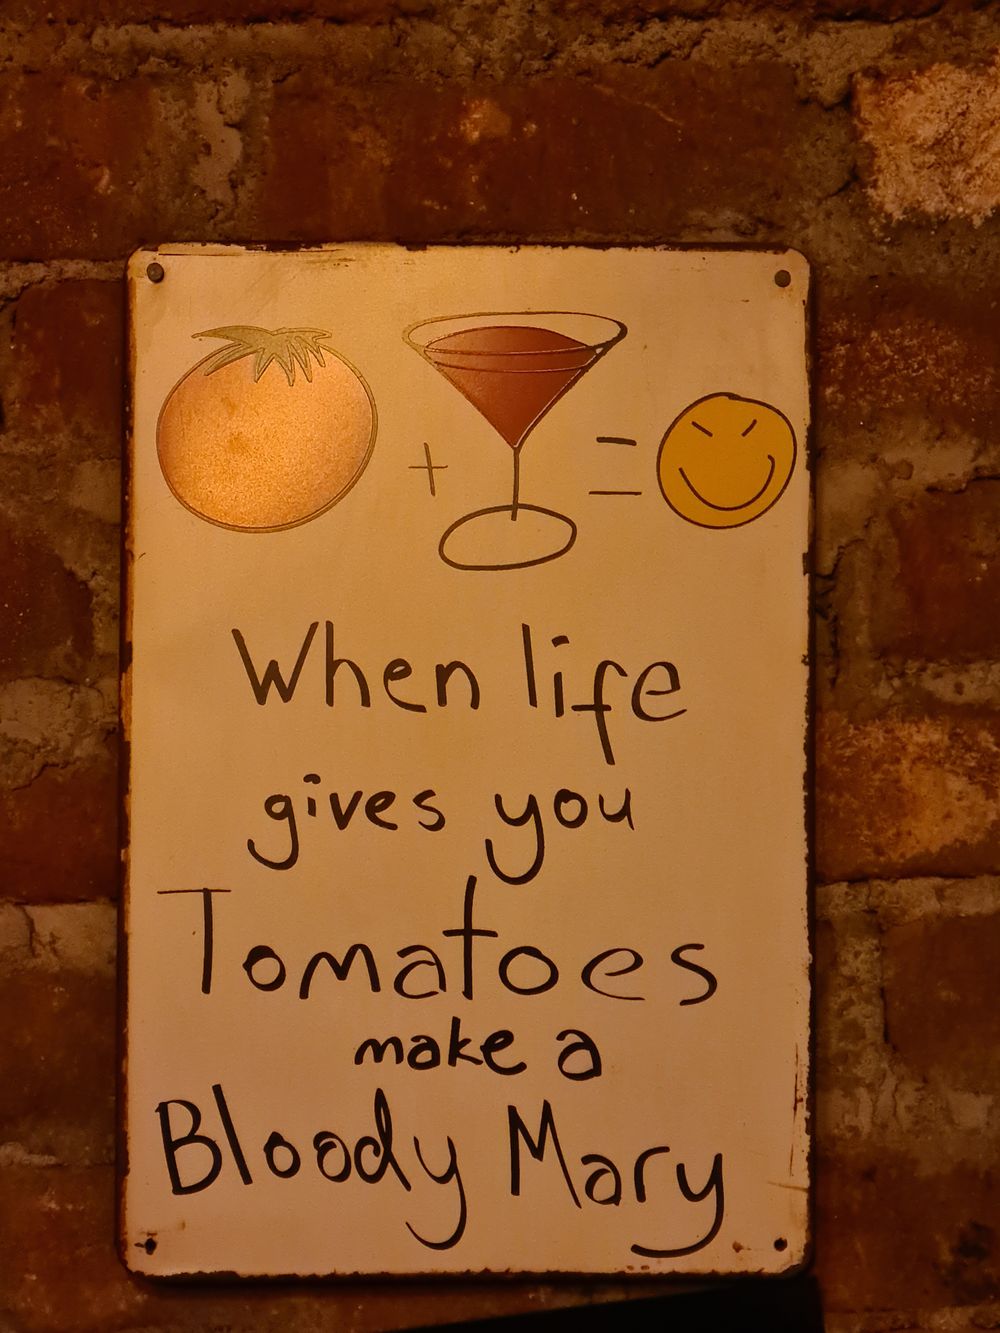 + =
When life
gives you
Tomatoes
make a
Bloody Mary